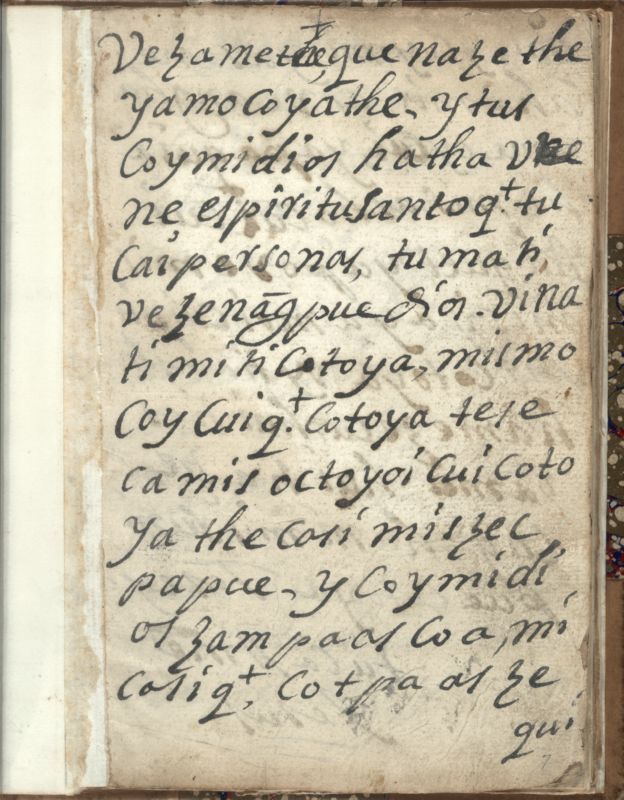 Vezamethe, que naze the
yamo coyathe, y tus
coymidios hatha v
ne, espiritusanto q.ᵗ tu
cai personas, tumati,
vezenāg pue dios. vina
ti miti cotoya, mismo
coy cui q.ᵗ cotoya tese
camis octoyoi cui coto
ya the casi miszec
papue, y coymidi
os zampaas coa, mi
casi q.ᵗ, cotpaas ze
qui